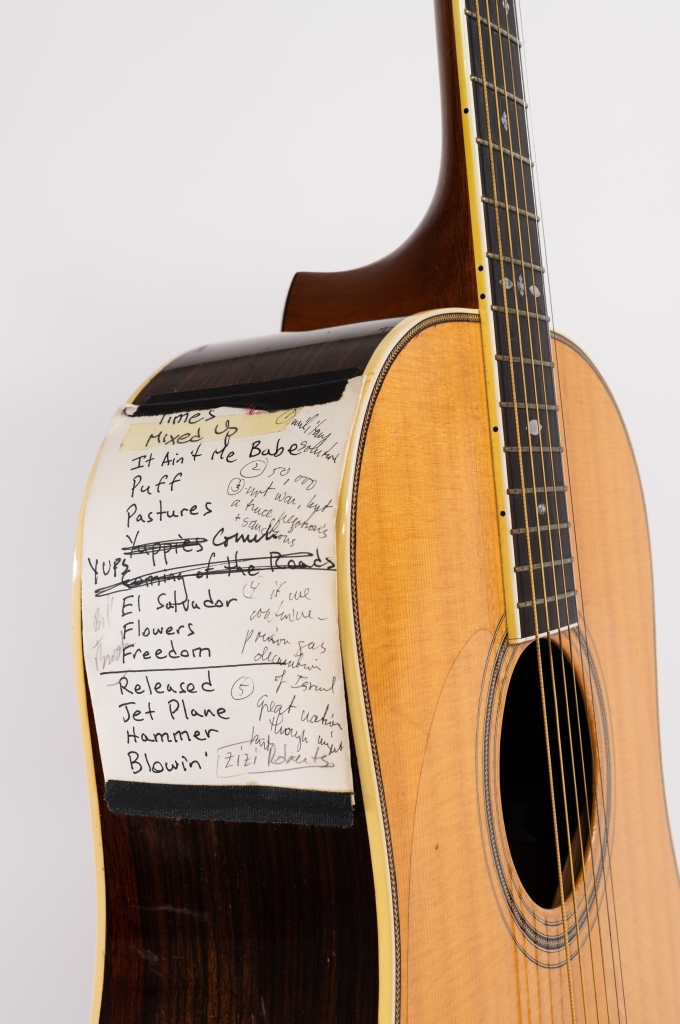 Times
Mixed Up
It Ain't Me Babe
Puff
② 50,000
Pastures
③ not war, but
a truce, negotions
+ sanctions
Yuppies Comin
YUPS
Coming of the Roads
El Salvador
④ if we
continue-
Flowers
poison gas
Freedom
of Israel
Released
⑤
Great nation
Jet Plane
though might
Hammer
hurt
Blowin'
Zizi Roberts
Bill